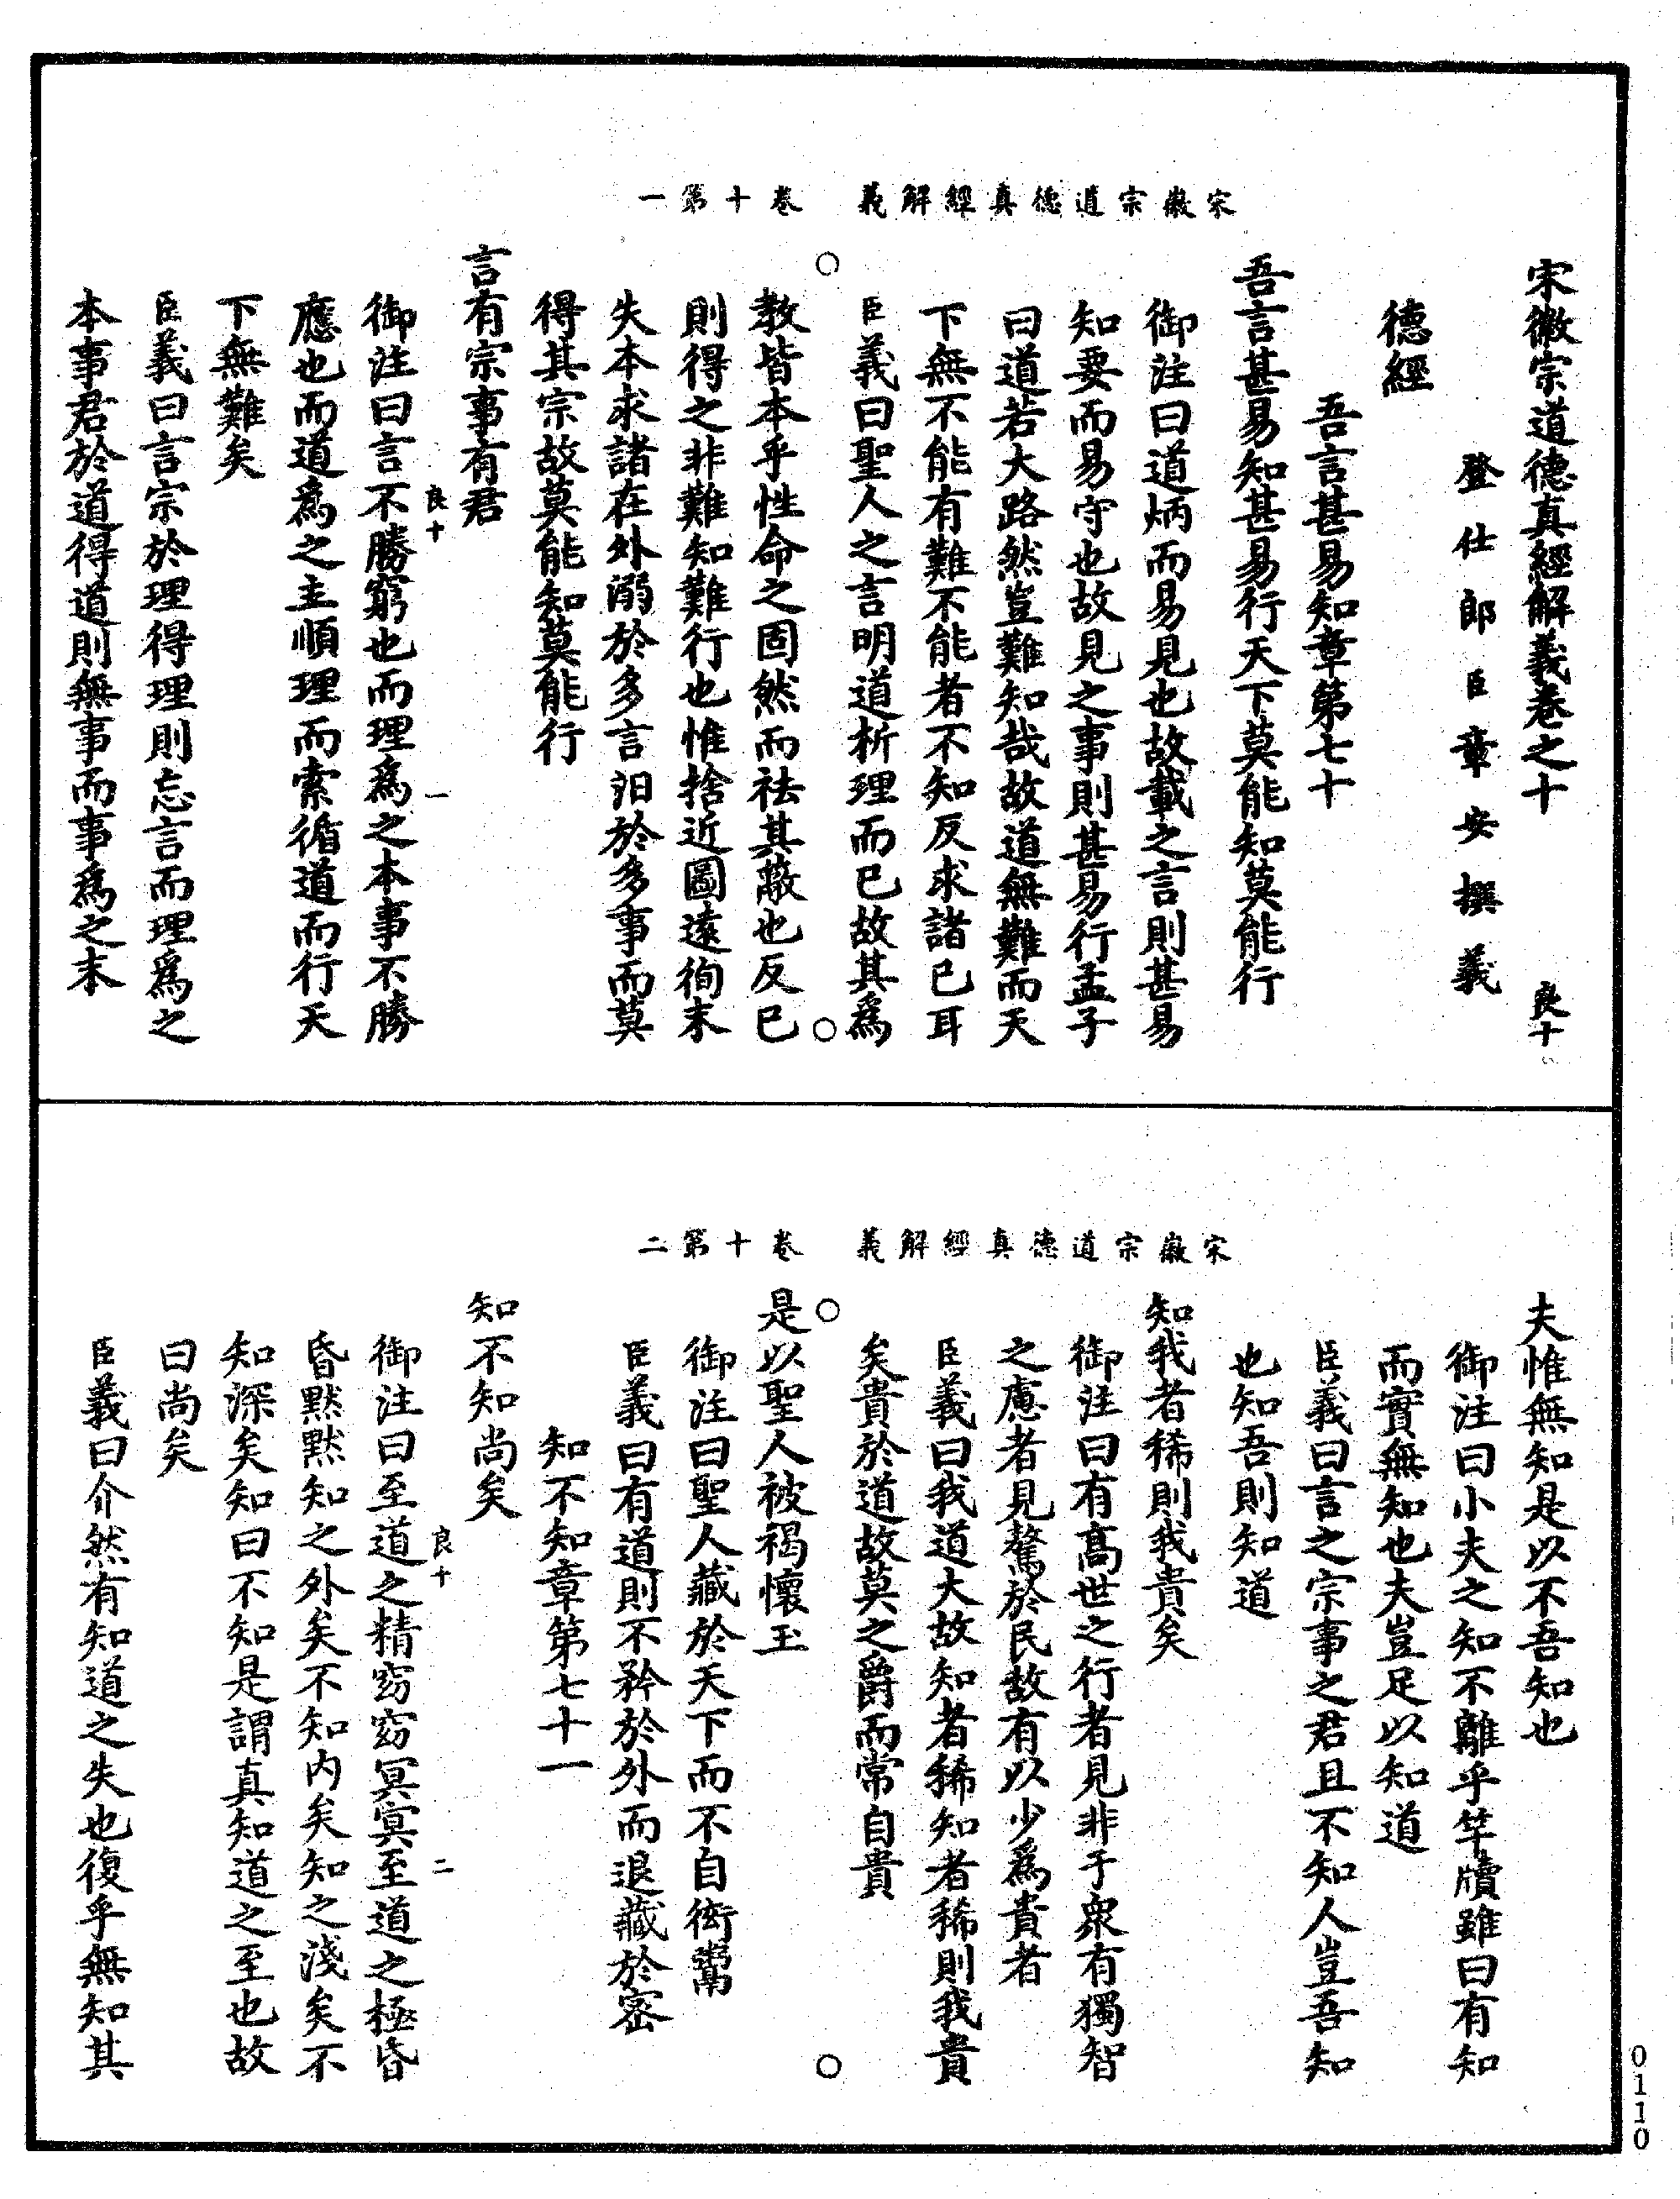 宋徽宗道德真經解義　卷十第一
宋徽宗道德真經解義卷之十　良十
登仕郎臣章安撰義
德經
吾言甚易知章第七十
吾言甚易知甚易行天下莫能知莫能行
御注曰道炳而易見也故載之言則甚易
知要而易守也故見之事則甚易行孟子
曰道若大路然豈難知哉故道無難而天
下無不能有難不能者不知反求諸己耳
臣義曰聖人之言明道析理而已故其為
教皆本乎性命之固然而祛其蔽也反已
則得之非難知難行也惟捨近圖遠徇末
失本求諸在外溺於多言汩於多事而莫
得其宗故莫能知莫能行
言有宗事有君
良十　一
御注曰言不勝窮也而理為之本事不勝
應也而道為之主順理而索循道而行天
下無難矣
臣義曰言宗於理得理則忘言而理為之
本事君於道得道則無事而事為之末
宋徽宗道德真經解義　卷十第二
夫惟無知是以不吾知也
御注曰小夫之知不離乎竿牘雖曰有知
而實無知也夫豈足以知道
臣義曰言之宗事之君且不知人豈吾知
也知吾則知道
知我者稀則我貴矣
御注曰有高世之行者見非于眾有獨智
之慮者見驁於民故有以少為貴者
臣義曰我道大故知者稀知者稀則我貴
矣貴於道故莫之爵而常自貴
是以聖人被褐懷玉
御注曰聖人藏於天下而不自衒鬻
臣義曰有道則不矜於外而退藏於密
知不知章第七十一
知不知尚矣
良十　二
御注曰至道之精窈窈冥冥至道之極昏
昏默默知之外矣不知內矣知之淺矣不
知深矣知曰不知是謂真知道之至也故
曰尚矣
臣義曰介然有知道之失也復乎無知其
0110